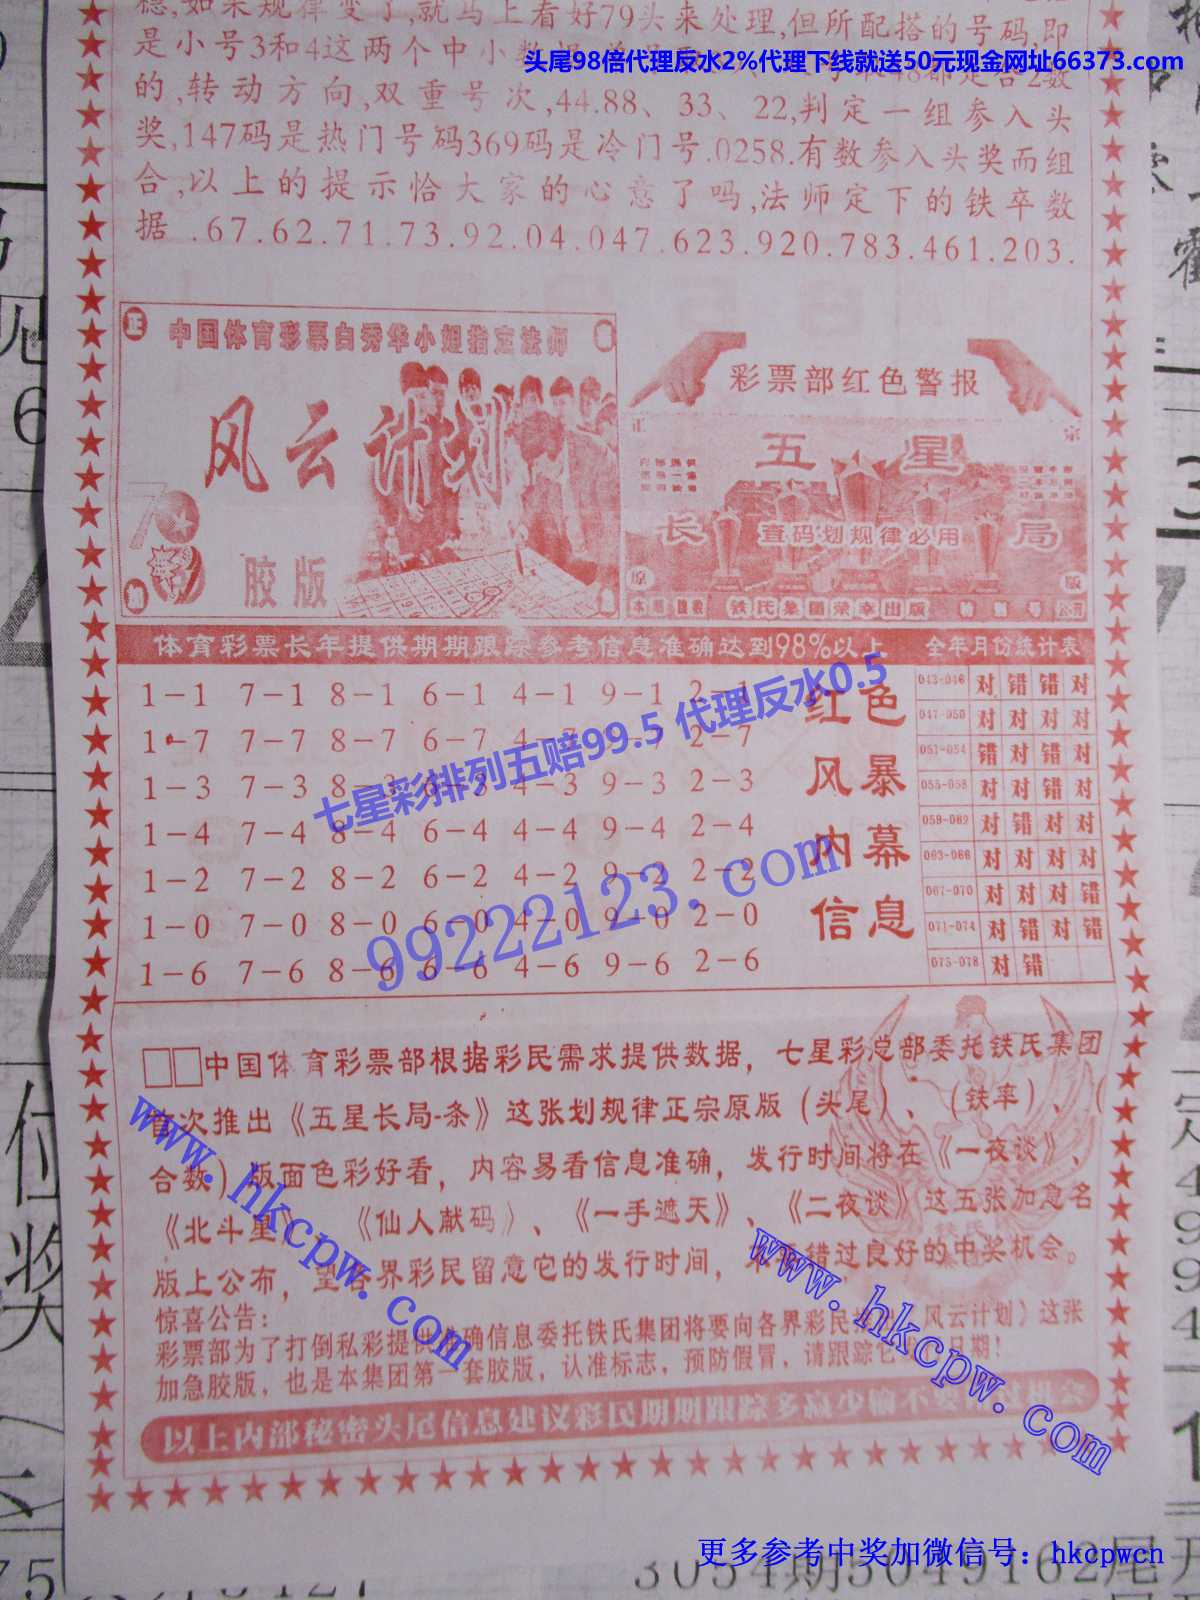 稳,如果规律变了,就马上看好79头来处理,但所配搭的号码,即
是小号3和4这两个中小数据
头尾98倍代理反水2%代理下线就送50元现金网址66373.com
的,转动方向,双重号次,44.88、33、22,判定一组参入头
奖,147码是热门号码369码是冷门号.0258.有数参入头奖而组
合,以上的提示恰大家的心意了吗,法师定下的铁卒数
据.67.62.71.73.92.04.047.623.920.783.461.203.
正
中国体育彩票白秀华小姐指定法师
风云计划
胶版
彩票部红色警报
正 宗
五星
长局
查码划规律必用
原 版
铁氏集团荣幸出版
体育彩票长年提供期期跟踪参考信息准确达到98%以上 全年月份统计表
1-1 7-1 8-1 6-1 4-1 9-1 2-1
1-7 7-7 8-7 6-7 4-7 9-7 2-7
1-3 7-3 8-3 6-3 4-3 9-3 2-3
1-4 7-4 8-4 6-4 4-4 9-4 2-4
1-2 7-2 8-2 6-2 4-2 9-2 2-2
1-0 7-0 8-0 6-0 4-0 9-0 2-0
1-6 7-6 8-6 6-6 4-6 9-6 2-6
红色
风暴
内幕
信息
043-046 对 错 错 对
047-050 对 对 对 对
051-054 错 对 错 对
055-058 对 对 错 对
059-062 对 错 对 对
063-066 对 对 对 对
067-070 对 对 对 错
071-074 对 错 对 错
075-078 对 错
七星彩排列五赔99.5 代理反水0.5
99222123.com
□□中国体育彩票部根据彩民需求提供数据，七星彩总部委托铁氏集团
首次推出《五星长局-条》这张划规律正宗原版（头尾）、（铁率）、（
合数）版面色彩好看，内容易看信息准确，发行时间将在《一夜谈》、
《北斗星》、《仙人献码》、《一手遮天》、《二夜谈》这五张加急名
版上公布，望各界彩民留意它的发行时间，不要错过良好的中奖机会。
惊喜公告：
彩票部为了打倒私彩提供准确信息委托铁氏集团将要向各界彩民推出《风云计划》这张
加急胶版，也是本集团第一套胶版，认准标志，预防假冒，请跟踪它 日期！
以上内部秘密头尾信息建议彩民期期跟踪多赢少输不要错过机会
www.hkcpw.com
www.hkcpw.com
更多参考中奖加微信号：hkcpwcn
3054期3049162尾